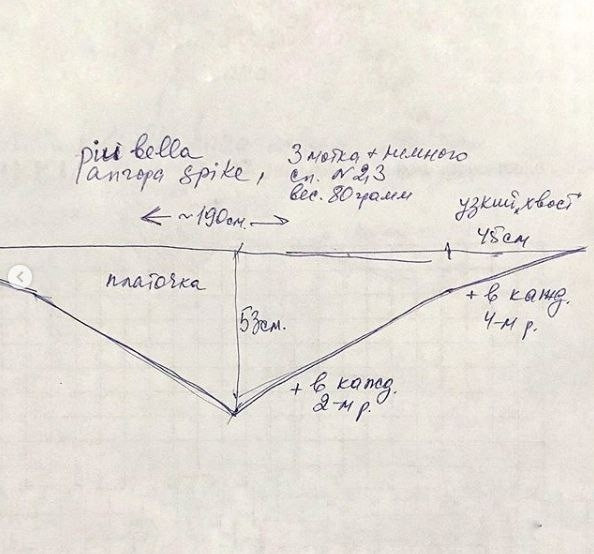 piu bella
ангора spike,
3 мотка + немного
сп. №2,3
вес. 80 грамм
~190см.
узкий "хвост"
45см
платочка
53см.
+ в кажд.
4-м р.
+ в кажд.
2-м р.